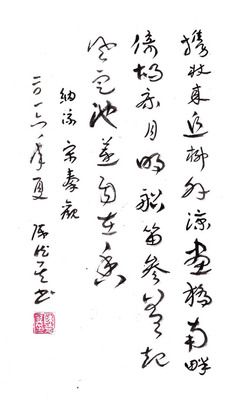 携杖來追柳外凉畫橋南畔
倚胡床月明船笛参差起
风定池莲自在香
纳凉 宋 秦觀
二〇一六年夏 书